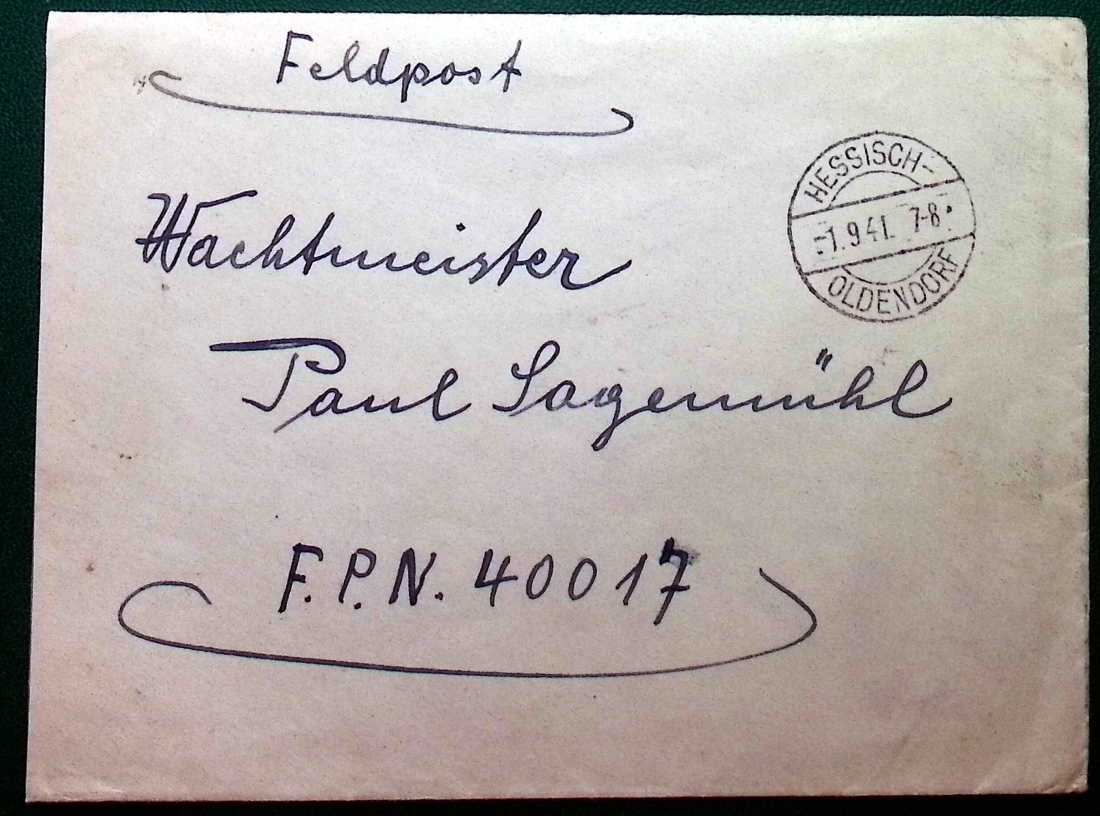 Feldpost
HESSISCH-
-1.9.41. 7-8
OLDENDORF
Wachtmeister
Paul Sagemühl
F.P.N. 40017